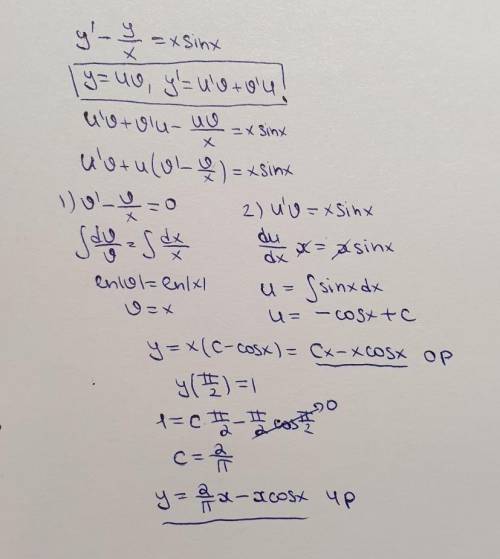 y' - y/x = x sinx
y = uv, y' = u'v + v'u!
u'v + v'u - uv/x = x sinx
u'v + u(v' - v/x) = x sinx
1) v' - v/x = 0
∫ dv/v = ∫ dx/x
ln|v| = ln|x|
v = x
2) u'v = x sinx
du/dx x = x sinx
u = ∫ sinx dx
u = -cosx + C
y = x(C - cosx) = Cx - x cosx ОР
y(π/2) = 1
1 = C π/2 - π/2 cos π/2 → 0
C = 2/π
y = 2/π x - x cosx ЧР